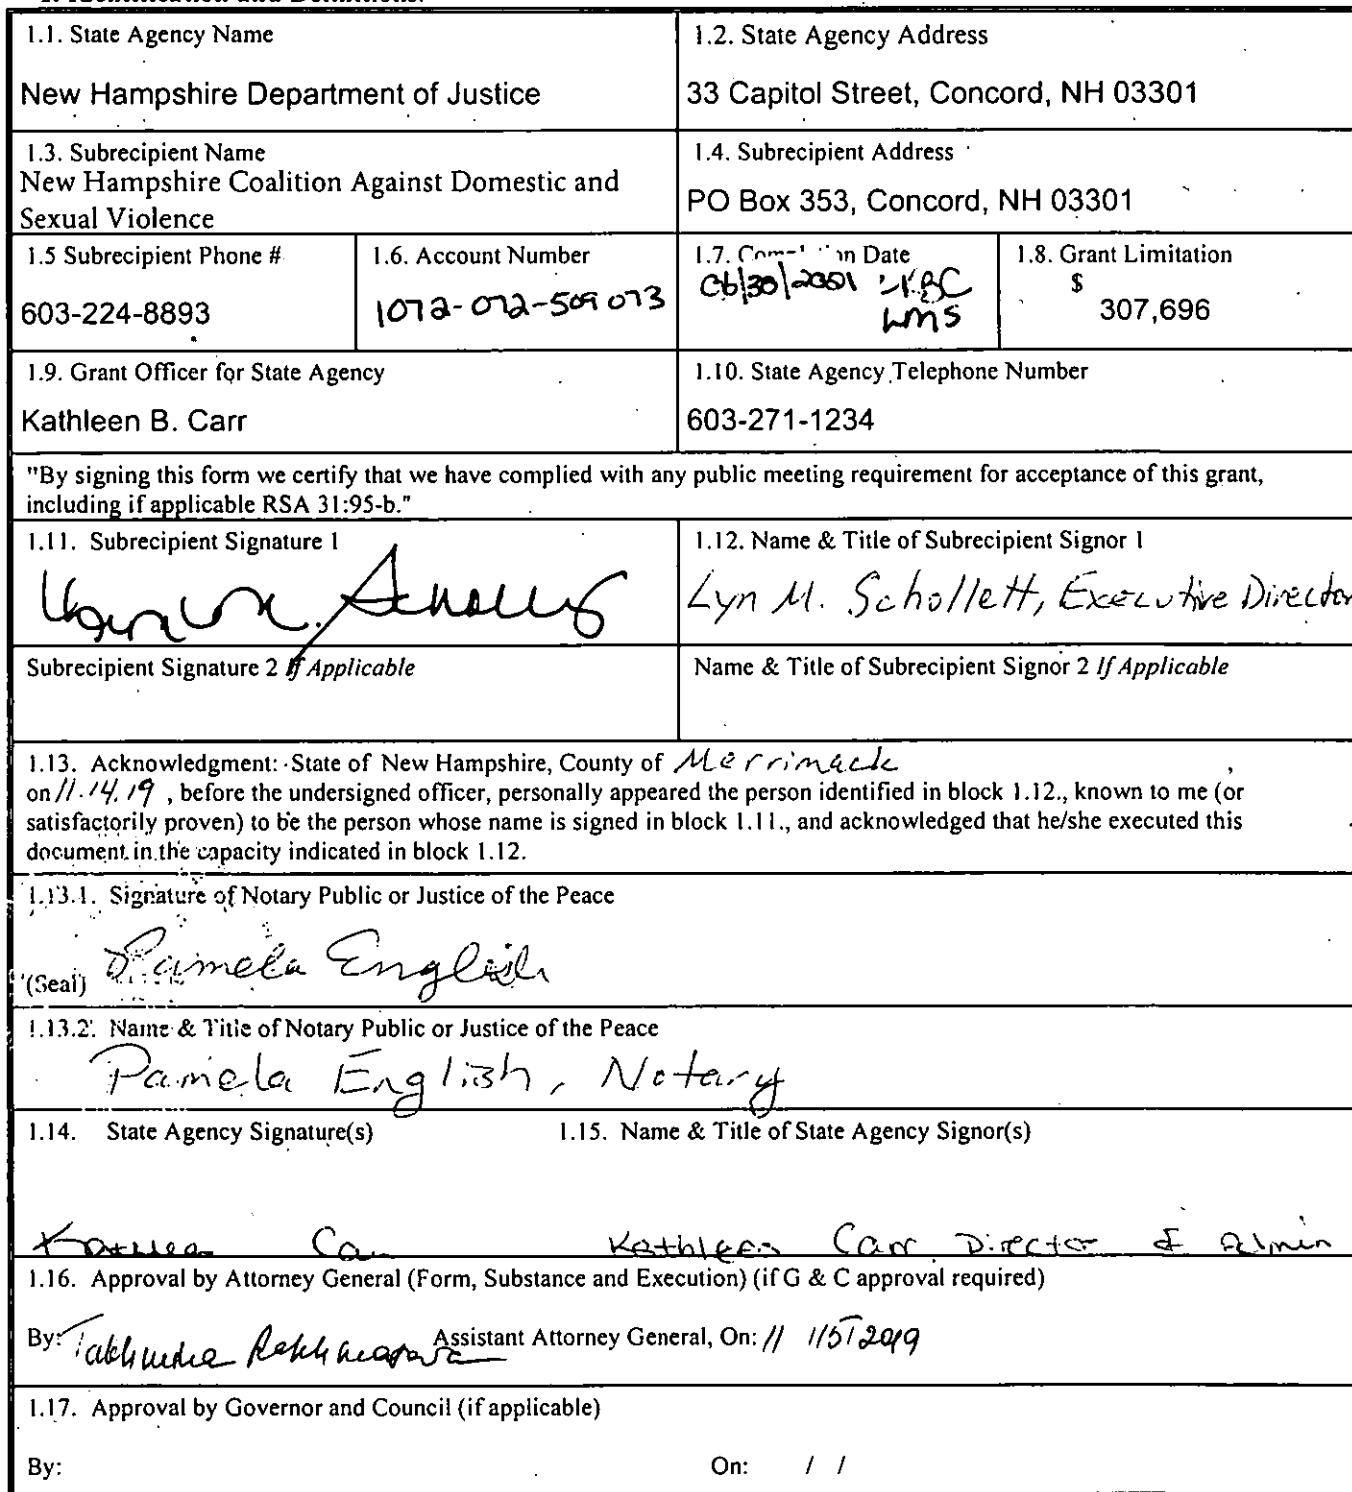 1.1. State Agency Name
New Hampshire Department of Justice
1.2. State Agency Address
33 Capitol Street, Concord, NH 03301
1.3. Subrecipient Name
New Hampshire Coalition Against Domestic and
Sexual Violence
1.4. Subrecipient Address
PO Box 353, Concord, NH 03301
1.5 Subrecipient Phone #
603-224-8893
1.6. Account Number
1072-072-509073
1.7. Date
KBC
LMS
1.8. Grant Limitation
$
307,696
1.9. Grant Officer for State Agency
Kathleen B. Carr
1.10. State Agency Telephone Number
603-271-1234
"By signing this form we certify that we have complied with any public meeting requirement for acceptance of this grant,
including if applicable RSA 31:95-b."
1.11. Subrecipient Signature 1
1.12. Name & Title of Subrecipient Signor 1
Lyn M. Schollett, Executive Director
Subrecipient Signature 2 If Applicable
Name & Title of Subrecipient Signor 2 If Applicable
1.13. Acknowledgment: State of New Hampshire, County of Merrimack ,
on 11.14.19 , before the undersigned officer, personally appeared the person identified in block 1.12., known to me (or
satisfactorily proven) to be the person whose name is signed in block 1.11., and acknowledged that he/she executed this
document in the capacity indicated in block 1.12.
1.13.1. Signature of Notary Public or Justice of the Peace
(Seal) Pamela English
1.13.2. Name & Title of Notary Public or Justice of the Peace
Pamela English, Notary
1.14. State Agency Signature(s)
1.15. Name & Title of State Agency Signor(s)
Kathleen Carr
Kathleen Carr Director of Admin
1.16. Approval by Attorney General (Form, Substance and Execution) (if G & C approval required)
By: Assistant Attorney General, On: 11/15/2019
1.17. Approval by Governor and Council (if applicable)
By: On: / /